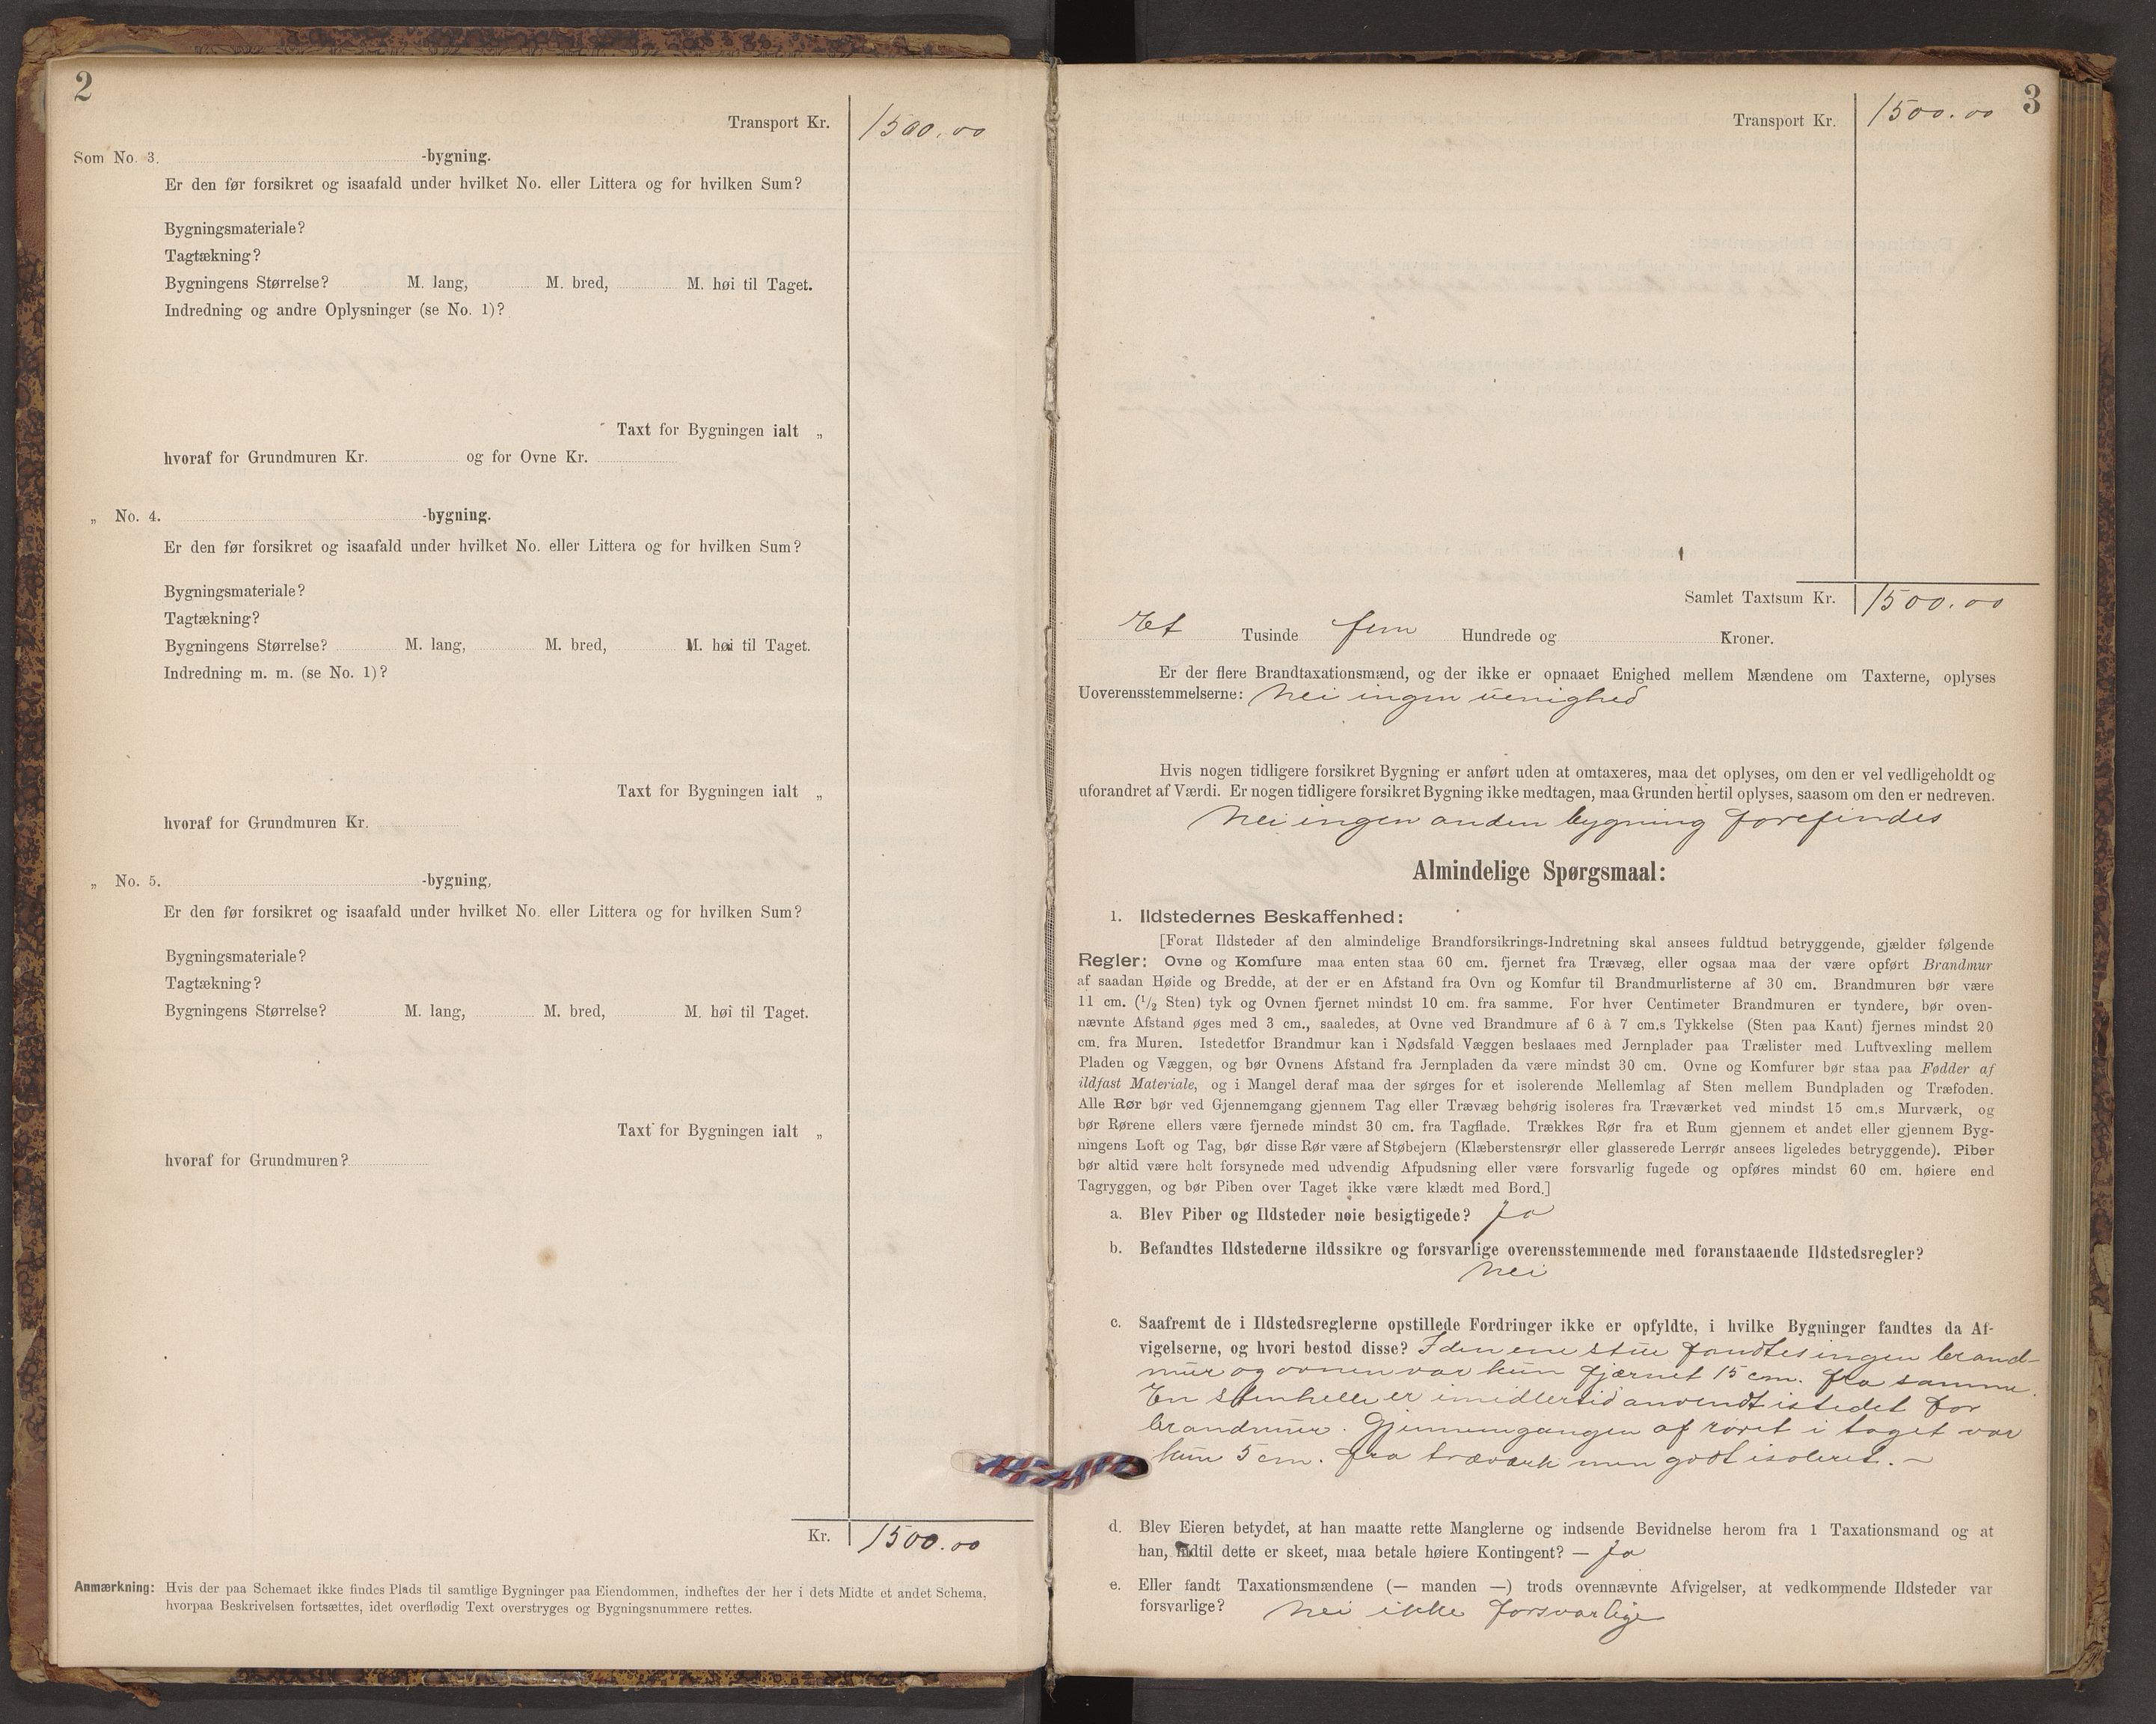 2
Transport Kr. 1500.00
Som No. 3. -bygning.
Er den før forsikret og isaafald under hvilket No. eller Littera og for hvilken Sum?
Bygningsmateriale?
Tagtækning?
Bygningens Størrelse? M. lang, M. bred, M. høi til Taget.
Indredning og andre Oplysninger (se No. 1)?
Taxt for Bygningen ialt „
hvoraf for Grundmuren Kr. og for Ovne Kr.
„ No. 4. -bygning.
Er den før forsikret og isaafald under hvilket No. eller Littera og for hvilken Sum?
Bygningsmateriale?
Tagtækning?
Bygningens Størrelse? M. lang, M. bred, M. høi til Taget.
Indredning m. m. (se No. 1)?
Taxt for Bygningen ialt „
hvoraf for Grundmuren Kr.
„ No. 5. -bygning.
Er den før forsikret og isaafald under hvilket No. eller Littera og for hvilken Sum?
Bygningsmateriale?
Tagtækning?
Bygningens Størrelse? M. lang, M. bred, M. høi til Taget.
Taxt for Bygningen ialt „
hvoraf for Grundmuren?
Kr. 1500.00
Anmærkning: Hvis der paa Schemaet ikke findes Plads til samtlige Bygninger paa Eiendommen, indheftes der her i dets Midte et andet Schema,
hvorpaa Beskrivelsen fortsættes, idet overflødig Text overstryges og Bygningsnummere rettes.
3
Transport Kr. 1500.00
Samlet Taxtsum Kr. 1500.00
Et Tusinde fem Hundrede og Kroner.
Er der flere Brandtaxationsmænd, og der ikke er opnaaet Enighed mellem Mændene om Taxterne, oplyses
Uoverensstemmelserne: Nei ingen uenighed
Hvis nogen tidligere forsikret Bygning er anført uden at omtaxeres, maa det oplyses, om den er vel vedligeholdt og
uforandret af Værdi. Er nogen tidligere forsikret Bygning ikke medtagen, maa Grunden hertil oplyses, saasom om den er nedreven.
Nei ingen anden bygning forefindes
Almindelige Spørgsmaal:
1. Ildstedernes Beskaffenhed:
[Forat Ildsteder af den almindelige Brandforsikrings-Indretning skal ansees fuldtud betryggende, gjælder følgende
Regler: Ovne og Komfure maa enten staa 60 cm. fjernet fra Trævæg, eller ogsaa maa der være opført Brandmur
af saadan Høide og Bredde, at der er en Afstand fra Ovn og Komfur til Brandmurlisterne af 30 cm. Brandmuren bør være
11 cm. (1/2 Sten) tyk og Ovnen fjernet mindst 10 cm. fra samme. For hver Centimeter Brandmuren er tyndere, bør oven-
nævnte Afstand øges med 3 cm., saaledes, at Ovne ved Brandmure af 6 à 7 cm.s Tykkelse (Sten paa Kant) fjernes mindst 20
cm. fra Muren. Istedetfor Brandmur kan i Nødsfald Væggen beslaaes med Jernplader paa Trælister med Luftvexling mellem
Pladen og Væggen, og bør Ovnens Afstand fra Jernpladen da være mindst 30 cm. Ovne og Komfurer bør staa paa Fødder af
ildfast Materiale, og i Mangel deraf maa der sørges for et isolerende Mellemlag af Sten mellem Bundpladen og Træfoden.
Alle Rør bør ved Gjennemgang gjennem Tag eller Trævæg behørig isoleres fra Træværket ved mindst 15 cm.s Murværk, og
bør Rørene ellers være fjernede mindst 30 cm. fra Tagflade. Trækkes Rør fra et Rum gjennem et andet eller gjennem Byg-
ningens Loft og Tag, bør disse Rør være af Støbejern (Klæberstensrør eller glasserede Lerrør ansees ligeledes betryggende). Piber
bør altid være helt forsynede med udvendig Afpudsning eller være forsvarlig fugede og opføres mindst 60 cm. høiere end
Tagryggen, og bør Piben over Taget ikke være klædt med Bord.]
a. Blev Piber og Ildsteder nøie besigtigede? Ja
b. Befandtes Ildstederne ildssikre og forsvarlige overensstemmende med foranstaaende Ildstedsregler?
Nei
c. Saafremt de i Ildstedsreglerne opstillede Fordringer ikke er opfyldte, i hvilke Bygninger fandtes da Af-
vigelserne, og hvori bestod disse? I den ene stue fandtes ingen brand-
mur og ovnen var kun fjærnet 15 cm. fra samme.
En stenhelle er imidlertid anvendt istedet for
brandmur. Gjennemgangen af røret i taget var
kun 5 cm. fra træværk men godt isoleret. —
d. Blev Eieren betydet, at han maatte rette Manglerne og indsende Bevidnelse herom fra 1 Taxationsmand og at
han, indtil dette er skeet, maa betale høiere Kontingent? — Ja
e. Eller fandt Taxationsmændene (— manden —) trods ovennævnte Afvigelser, at vedkommende Ildsteder var
forsvarlige? Nei ikke forsvarlige